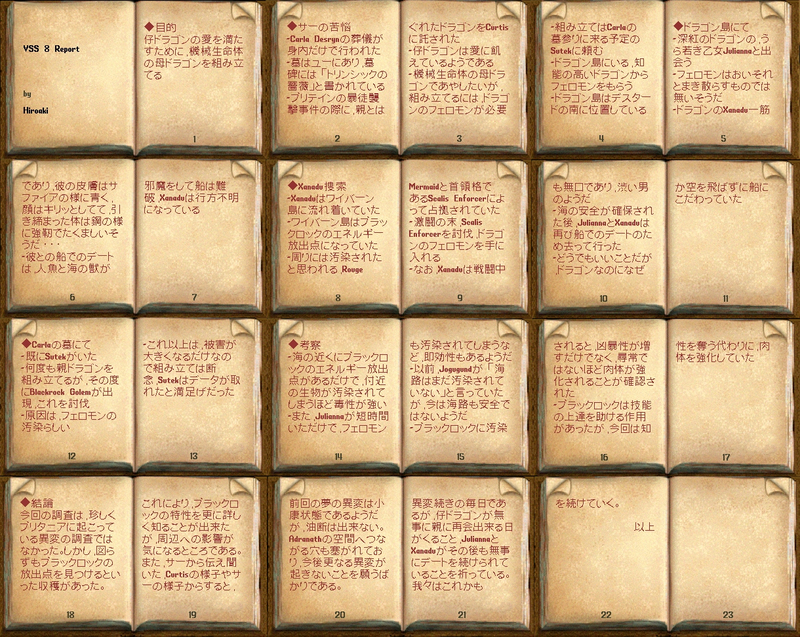 VSS 8 Report
by
Hiroaki
◆目的
仔ドラゴンの愛を満た
すために、機械生命体
の母ドラゴンを組み立
てる
1
◆サーの苦悩
-Carla Desrynの葬儀が
身内だけで行われた
-墓はユーにあり、墓
碑には「トリンシックの
薔薇」と書かれている
-ブリテインの暴徒襲
撃事件の際に、親とは
2
ぐれたドラゴンをCurtis
に託された
-仔ドラゴンは愛に飢
えているようである
-機械生命体の母ドラ
ゴンであやしたいが、
組み立てるにはドラゴ
ンのフェロモンが必要
3
-組み立てはCarlaの
墓参りに来る予定の
Sutekに頼む
-ドラゴン島にいる、知
能の高いドラゴンから
フェロモンをもらう
-ドラゴン島はデスター
ドの南に位置している
4
◆ドラゴン島にて
-深紅のドラゴンの、う
ら若き乙女Julianneと出
会う
-フェロモンはおいそれ
とまき散らすものでは
無いそうだ
-ドラゴンのXanadu一筋
5
であり、彼の皮膚はサ
ファイアの様に青く、
顔はキリッとしてて、引
き締まった体は鋼の様
に強靭でたくましいそ
うだ・・・
-彼との船でのデート
は、人魚と海の獣が
6
邪魔をして船は難
破、Xanaduは行方不明
になっている
7
◆Xanadu捜索
-Xanaduはワイバーン
島に流れ着いていた
-ワイバーン島はブラッ
クロックのエネルギー
放出点になっていた
-周りには汚染された
と思われる Rouge
8
Mermaidと首領格で
あるSealis Enforcerによ
って占拠されていた
-激闘の末、Sealis
Enforcerを討伐、ドラゴ
ンのフェロモンを手に
入れる
-なお、Xanaduは戦闘中
9
も無口であり、渋い男
のようだ
-海の安全が確保され
た後、JulianneとXanaduは
再び船でのデートのた
め去って行った
-どうでもいいことだが
、ドラゴンなのになぜ
10
か空を飛ばずに船に
こだわっていた
11
◆Carlaの墓にて
-既にSutekがいた
-何度も親ドラゴンを
組み立てるが、その度
にBlackrock Golemが出
現、これを討伐
-原因は、フェロモンの
汚染らしい
12
-これ以上は、被害が
大きくなるだけなの
で組み立ては断
念、Sutekはデータが取
れたと満足げだった
13
◆考察
-海の近くにブラックロ
ックのエネルギー放出
点があるだけで、付近
の生物が汚染されて
しまうほど毒性が強い
-また、Julianneが短時間
いただけで、フェロモン
14
も汚染されてしまうな
ど、即効性もあるようだ
-以前、Jogugundが「海
路はまだ汚染されて
いない」と言っていた
が、今は海路も安全で
はないようだ
-ブラックロックに汚染
15
されると、凶暴性が増
すだけでなく、尋常で
はないほど肉体が強
化されることが確認さ
れた
-ブラックロックは技能
の上達を助ける作用
があったが、今回は知
16
性を奪う代わりに、肉
体を強化していた
17
◆結論
今回の調査は、珍しく
ブリタニアに起こってい
る異変の調査では
なかった。しかし、図ら
ずもブラックロックの
放出点を見つけるとい
った収穫があった。
18
これにより、ブラックロ
ックの特性を更に詳し
く知ることが出来た
が、周辺への影響が
気になるところである。
また、サーから伝え聞
いた、Curtisの様子やサ
ーの様子からすると、
19
前回の夢の異変は小
康状態であるようだ
が、油断は出来ない。
Adranathの空間へつな
がる穴も塞がれてお
り、今後更なる異変が
起きないことを願うば
かりである。
20
異変続きの毎日であ
るが、仔ドラゴンが無
事に親に再会出来る日
がくること、Julianneと
Xanaduがその後も無事
にデートを続けられて
いることを祈っている。
我々はこれかも
21
を続けていく。
以上
22
23